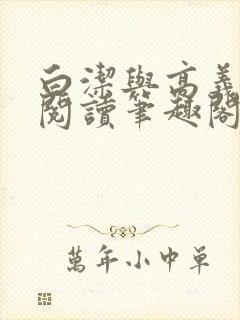 白潔與高義
閱讀筆趣閣
萬年小中單